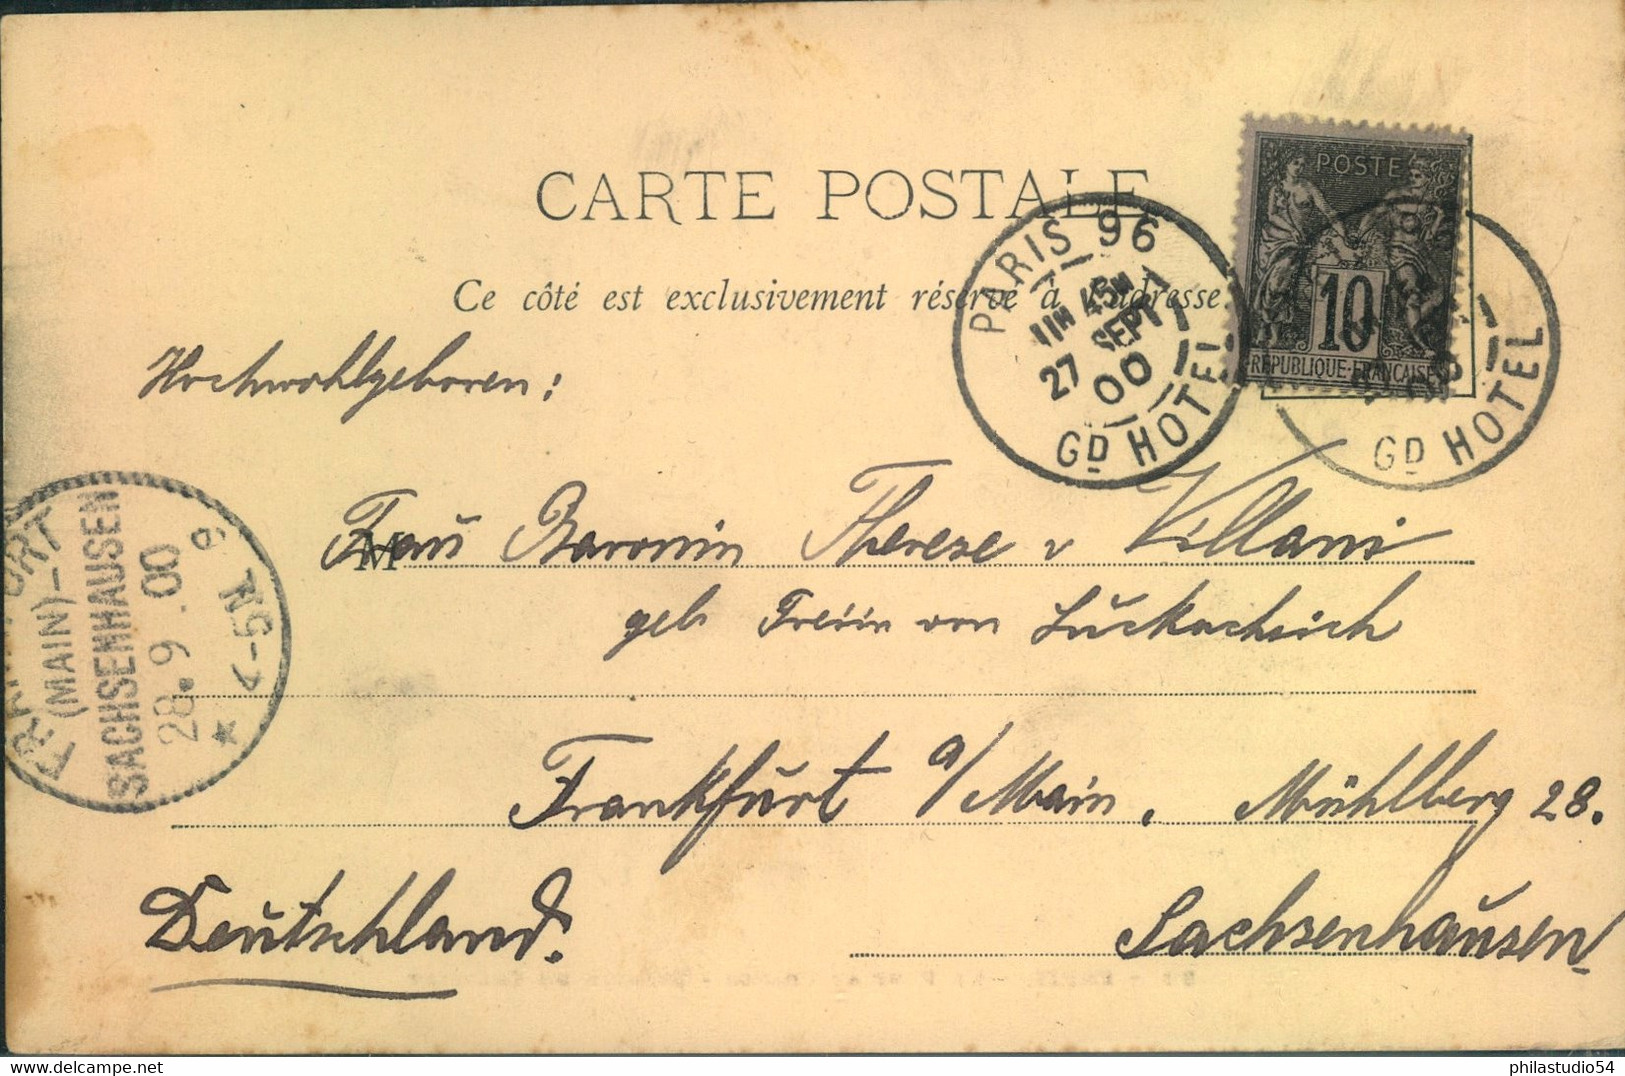 CARTE POSTALE
Ce côté est exclusivement réservé à l'adresse
POSTE
10
REPUBLIQUE FRANCAISE
PARIS 96
11M 45M
27 SEPT
00
GD HOTEL
GD HOTEL
Hochwohlgeboren:
M
Frau Baronin Therese v Villani
geb Freiin von Luckachsich
Frankfurt a/Main, Mühlberg 28.
Deutschland.
Sachsenhausen
FRANKFURT
(MAIN)-
SACHSENHAUSEN
28.9.00
4-5N.
e
philastudio54